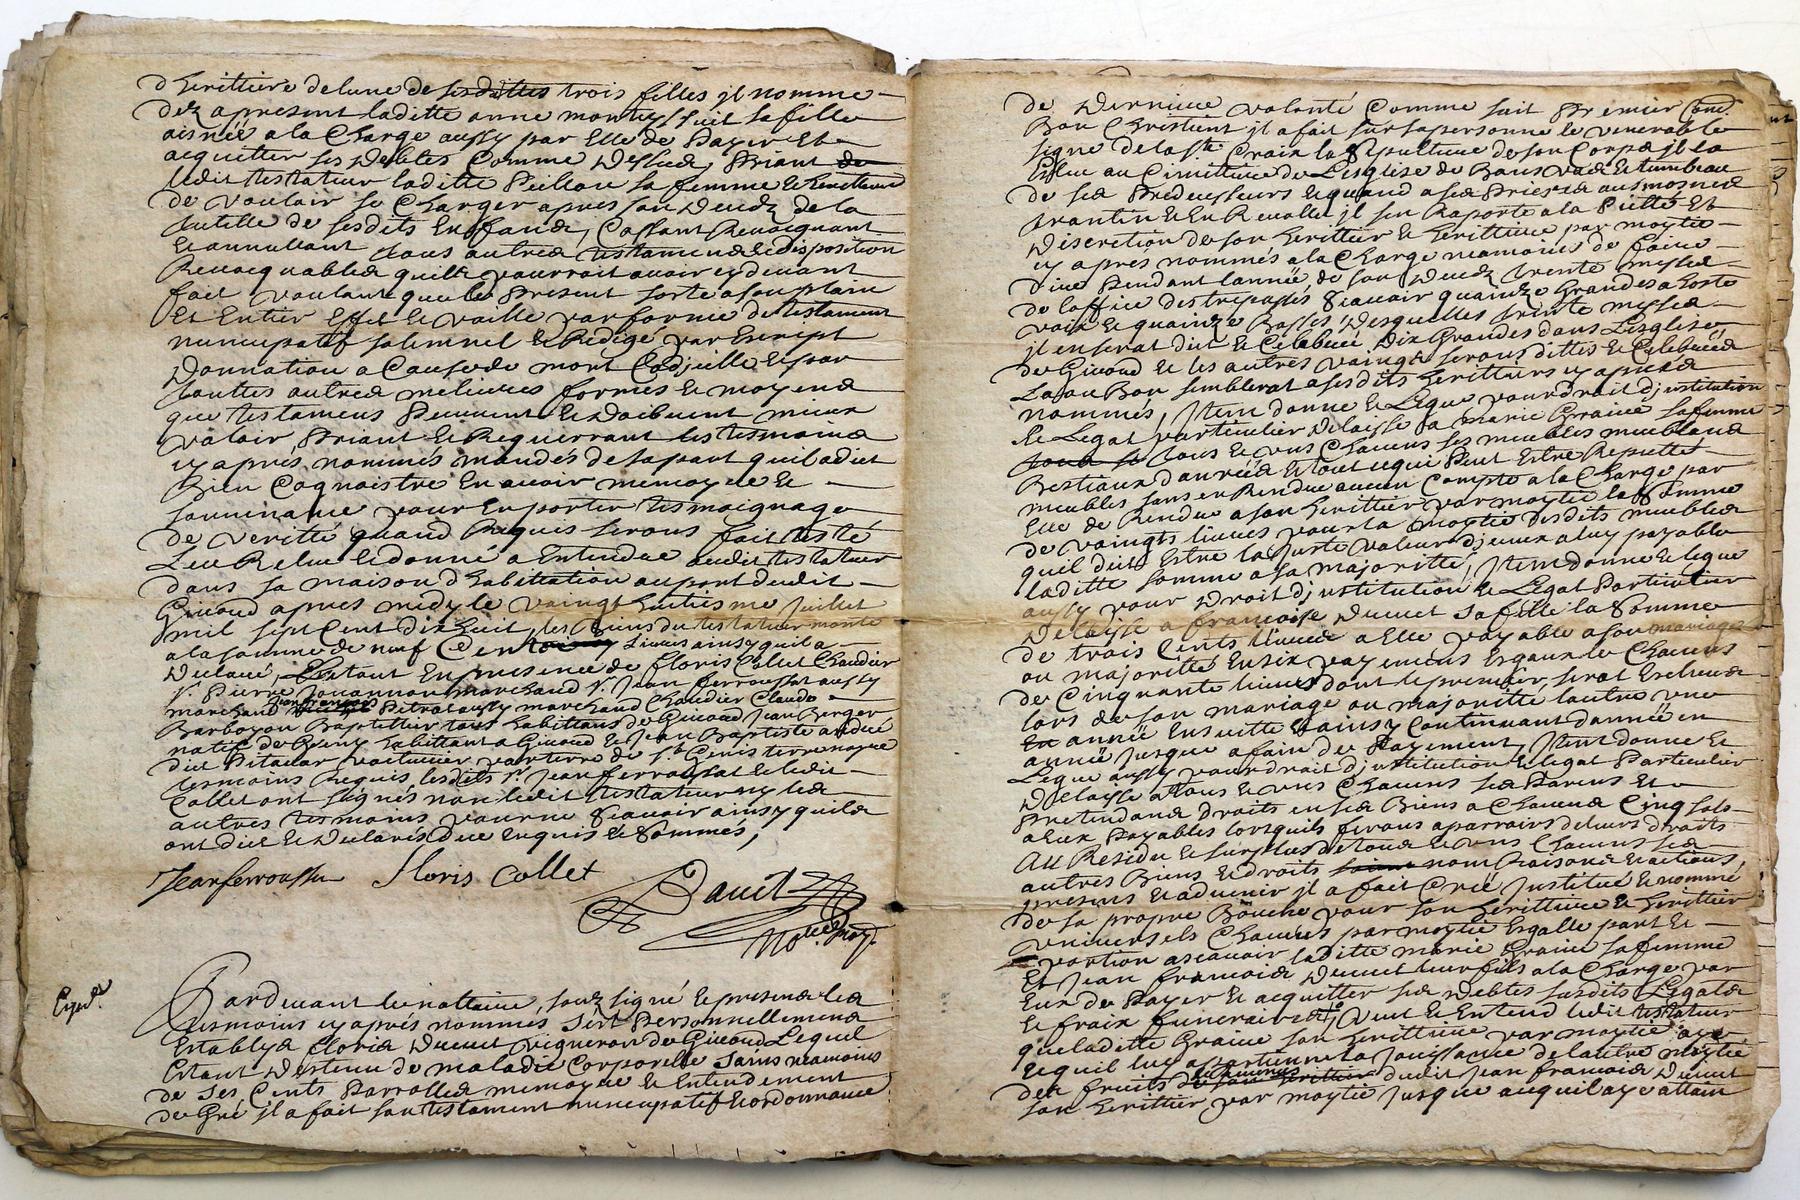 d herittiere de lune de sesdittes trois filles jl nomme
dez apresent laditte anne monthy suit sa fille
aisnée a la Charge aussy par Elle de Payer Et
acquitter ses debtes Comme dessus, Priant de
ledit testateur laditte Peillon sa femme Et heritiere
de vouloir se Charger apres son deceds de la
tutelle de sesdits Enffans, Cassant Revocquant
Et annullant tous autres testamens Et disposition
Revocquables quil pourroit avoir cy devant
fait voulant que le Present sorte a son plain
Et Entier Effet Et vaille par forme de testament
nuncupatif solemnel Et Redigé par Escript
donnation a Cause de mort Codicille Et par
touttes autres melieures formes Et moyens
que testamens Peuvent Et doibvent mieux
valoir Priant Et Requerrant les tesmoins
cy aprés nommés mandés de sa part quil a dict
Bien Cognoistre En avoir memoyre Et
souvenance pour En porter tesmoignage
de veritté quand Requis seront fait testé
Leu Releu Et donné a Entendre audit testateur
dans sa maison d habittation au port dudit
Givord apres midy le vaingt huitiesme Juillet
mil sept Cent dix huit, les Biens du testateur monte
a la somme de neuf Cent livres ainsy quil a
declaré, Estant En presence de Floris Collet Chaudier
sr. Pierre Jouannon marchand sr. Jean ferroussat aussy
marchand Jean françois Pitrat aussy marchand Chaudier Claude
Barboyon Baptellier tous habittans de Givord Jean Berger
natif de habittant a Givord Et Jean Baptiste andré
dit Pitaclar voiturier par terre de st. Genis terre noyre
tesmoins Requis lesdits sr. Jean ferroussat Et ledit
Collet ont signés non ledit testateur ny les
autres tesmoins pour ne scavoir ainsy quils
ont dict Et declarés de ce Enquis Et sommés,
Jean ferroussat Floris Collet
David
Nore. Roy.
Exped.
Pardevant le nottaire soubz signé Et presens les
tesmoins cy aprés nommés s'est Personnellement
Estably Floris Ducuet vigneron de Givord Lequel
Estant destenu de maladie Corporelle sains neamoins
de ses Cents Parrolles memoyre Et Entendement
de Gré jl a fait son testament nuncupatif Et ordonnance
de derniere volonté Comme suit Premier Comme
Bon Christient jl a fait sur sa personne le venerable
signe de la ste. Croix la sepulture de son Corps jl la
Esleu au Cimittiere de Lesglise de Bans vas Et tumbeau
de ses Predecesseurs Et quand a ses Prieres ausmosnes
trantin Et En Revolle jl sen Raporte a la Pietté Et
discretion de son heritier Et herittiere par moytie
cy apres nommés a la Charge neamoins de faire
dire Pendant l'année de son deceds trente messes
de loffice des trepassés, scavoir quainze Grandes a haute
voix Et quainze Basses desquelles trente messes
jl en serat dit Et Celebrée dix Grandes dans Lesglise
de Givord Et les autres vaingt seront dittes Et Celebrées
La ou Bon semblerat a sesdits heritiers cy apres
nommés, Item donne Et Legue pour droit d'institution
Et Legat particulier delaisse a marie Graine sa femme
tous Et uns Chacuns ses meubles meublans
Bestiaux danrées Et tout ce qui Peut Estre Reputté
meubles sans en Rendre aucun Compte a la Charge par
Elle de Rendre a son heritier par moytie la somme
de vaingts livres pour la moytie desdits meubles
quil dict Estre la juste valeur d'jceux a luy payable
laditte somme a sa majoritté, Item donne Et legue
aussy pour droit d institution Et Legat Particulier
delaisse a francoise Ducuet sa fille la somme
de trois Cents livres a Elle payable a son mariage
ou majoritté En six payemens Esgaux de Chacuns
de Cinquante livres dont le premier serat Escheut
lors de son mariage ou majoritté lautre une
année Ensuitte Et ainsy Continuant d'année en
année jusques a fain de Payement, Item donne Et
Legue aussy pour droit d institution Et Legat Particulier
delaisse a tous Et uns Chacuns ses Parens Et
Pretendans droits en ses Biens a Chacuns Cinq sols
a Eux Payables lorsquils feront aparroire de leurs droits
Au Residu Et surplus de tous Et uns Chacuns ses
autres Biens Et droits noms Raisons Et actions,
presens Et advenir jl a fait Créé Institué Et nommé
de sa propre Bouche pour son herittiere Et heritier
universels Chacuns par moytie Esgalle part Et
portion ascavoir laditte marie Graine sa femme
Et Jean francois Ducuet leur fils a la Charge par
Eux de Payer Et acquitter ses debtes susdits Legats
Et fraix funeraires, veut Et Entend ledit testateur
que laditte Graine son herittiere par moytie aye
Et quil luy apartienne la jouissance de lautre moytie
des fruits dudit Jean francois Ducuet
son heritier par moytie jusque acequil aye attain